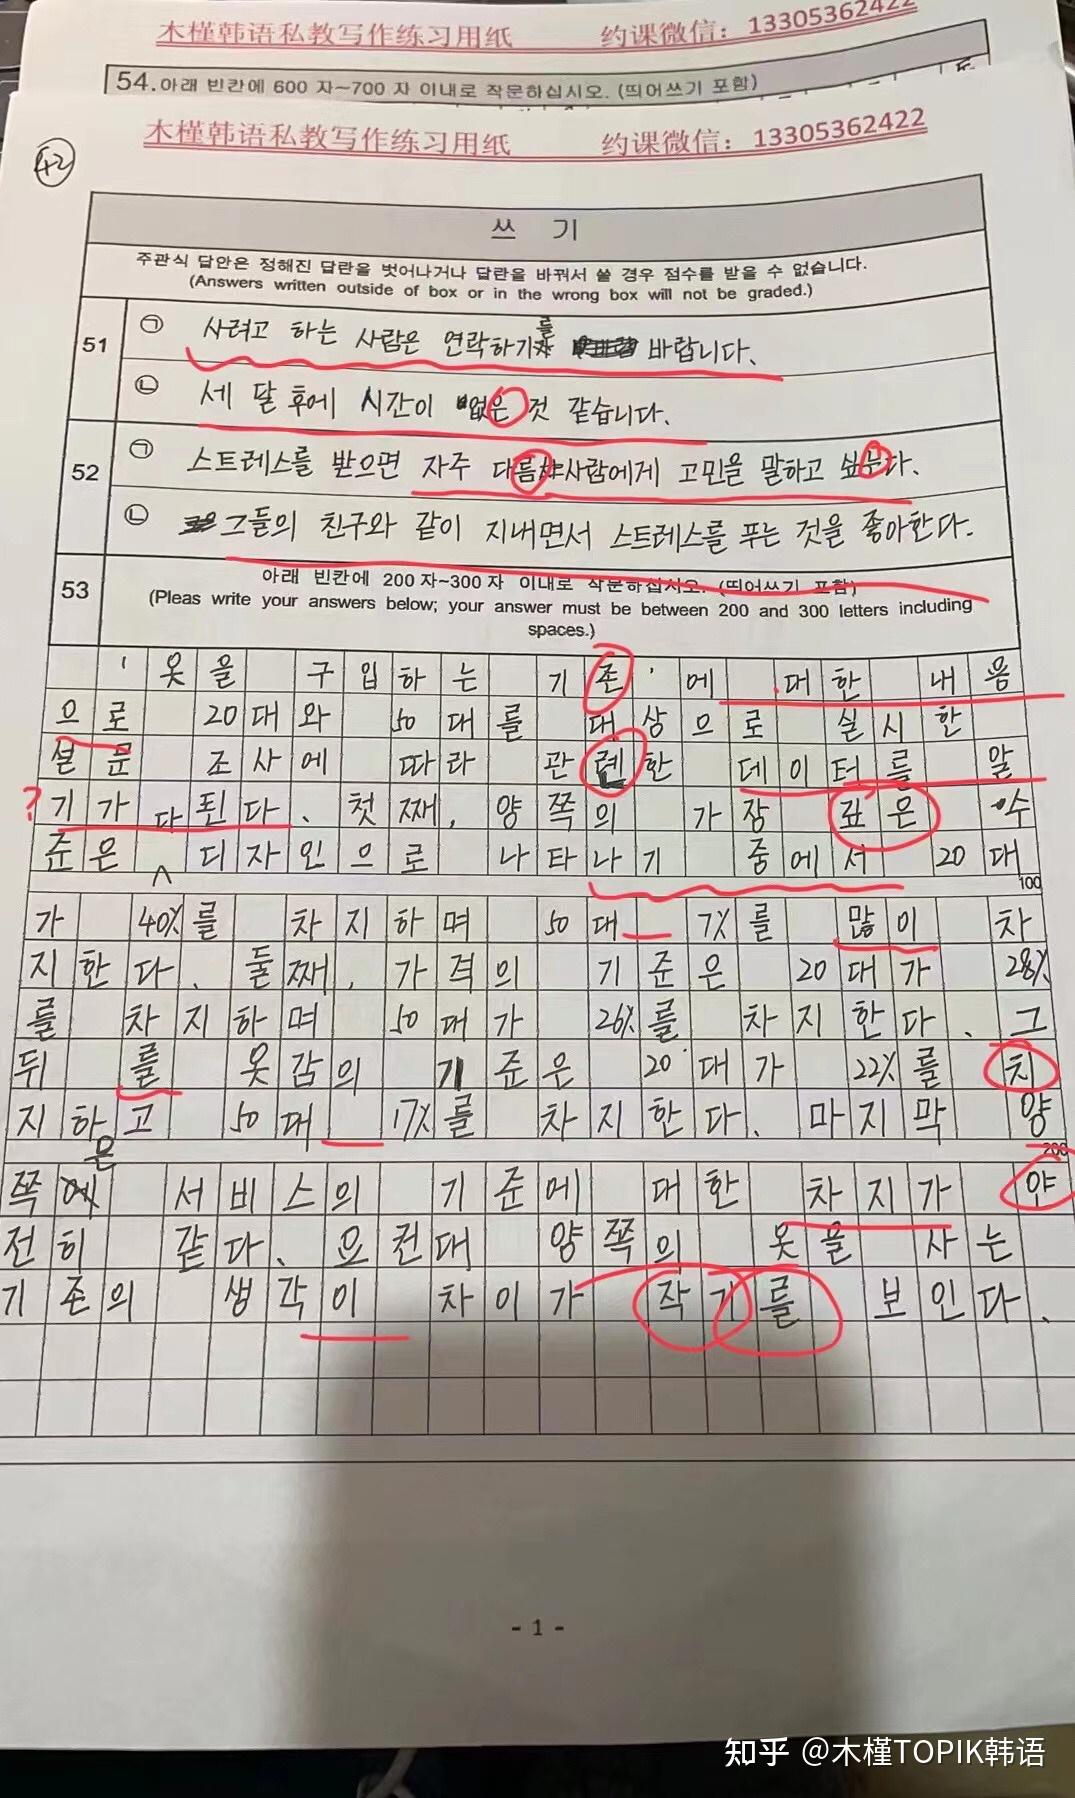 木槿韩语私教写作练习用纸 约课微信：13305362422
54.아래 빈칸에 600 자~700 자 이내로 작문하십시오. (띄어쓰기 포함)
木槿韩语私教写作练习用纸 约课微信：13305362422
42
쓰 기
주관식 답안은 정해진 답란을 벗어나거나 답란을 바꿔서 쓸 경우 점수를 받을 수 없습니다.
(Answers written outside of box or in the wrong box will not be graded.)
51 ㉠ 사려고 하는 사람은 연락하기를 바랍니다.
㉡ 세 달 후에 시간이 없은 것 같습니다.
52 ㉠ 스트레스를 받으면 자주 다름 사람에게 고민을 말하고 싶는다.
㉡ 그들의 친구와 같이 지내면서 스트레스를 푸는 것을 좋아한다.
53 아래 빈칸에 200 자~300 자 이내로 작문하십시오. (띄어쓰기 포함)
(Pleas write your answers below; your answer must be between 200 and 300 letters including
spaces.)
'옷을 구입하는 기존'에 대한 내용
으로 20대와 50대를 대상으로 실시한
설문 조사에 따라 관렌한 데이터를 알
? 기가 다 된다. 첫째, 양쪽의 가장 쿄은 수
준은 디자인으로 나타나기 중에서 20대
100
가 40%를 차지하며 50대 7%를 많이 차
지한다. 둘째, 가격의 기준은 20대가 28%
를 차지하며 50대가 26%를 차지한다. 그
뒤 를 옷감의 기준은 20대가 22%를 치
지하고 50대 17%를 차지한다. 마지막 양
200
쪽은 서비스의 기준에 대한 차지가 얀
전히 같다. 요컨대 양쪽의 옷을 사는
기존의 생각이 차이가 작기를 보인다.
- 1 -
知乎 @木槿TOPIK韩语